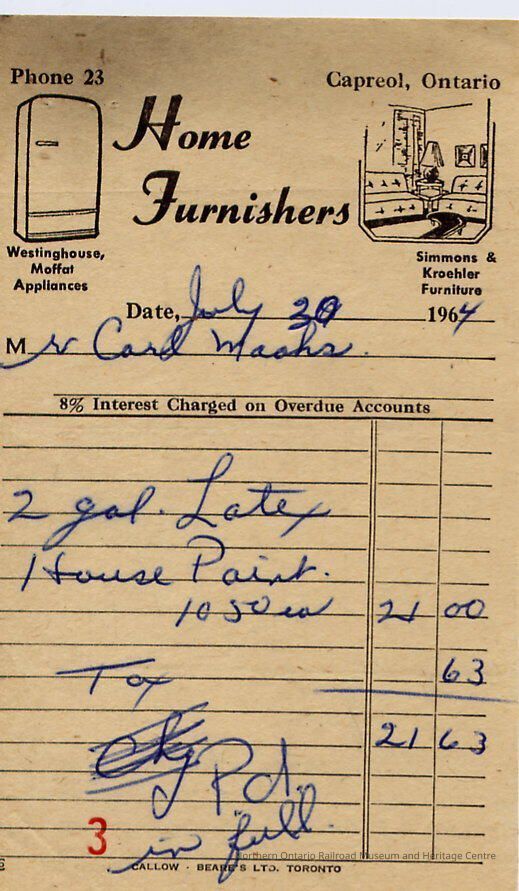 Phone 23
Capreol, Ontario
Home
Furnishers
Westinghouse,
Moffat
Appliances
Simmons &
Kroehler
Furniture
Date, July 20 1964
Mr Carl Maahs.
8% Interest Charged on Overdue Accounts
2 gal. Latex
House Paint.
10 50 ea 21 00
Tax 63
21 63
Chg Pd.
in full.
3
Northern Ontario Railroad Museum and Heritage Centre
CALLOW - BEARE'S LTD. TORONTO